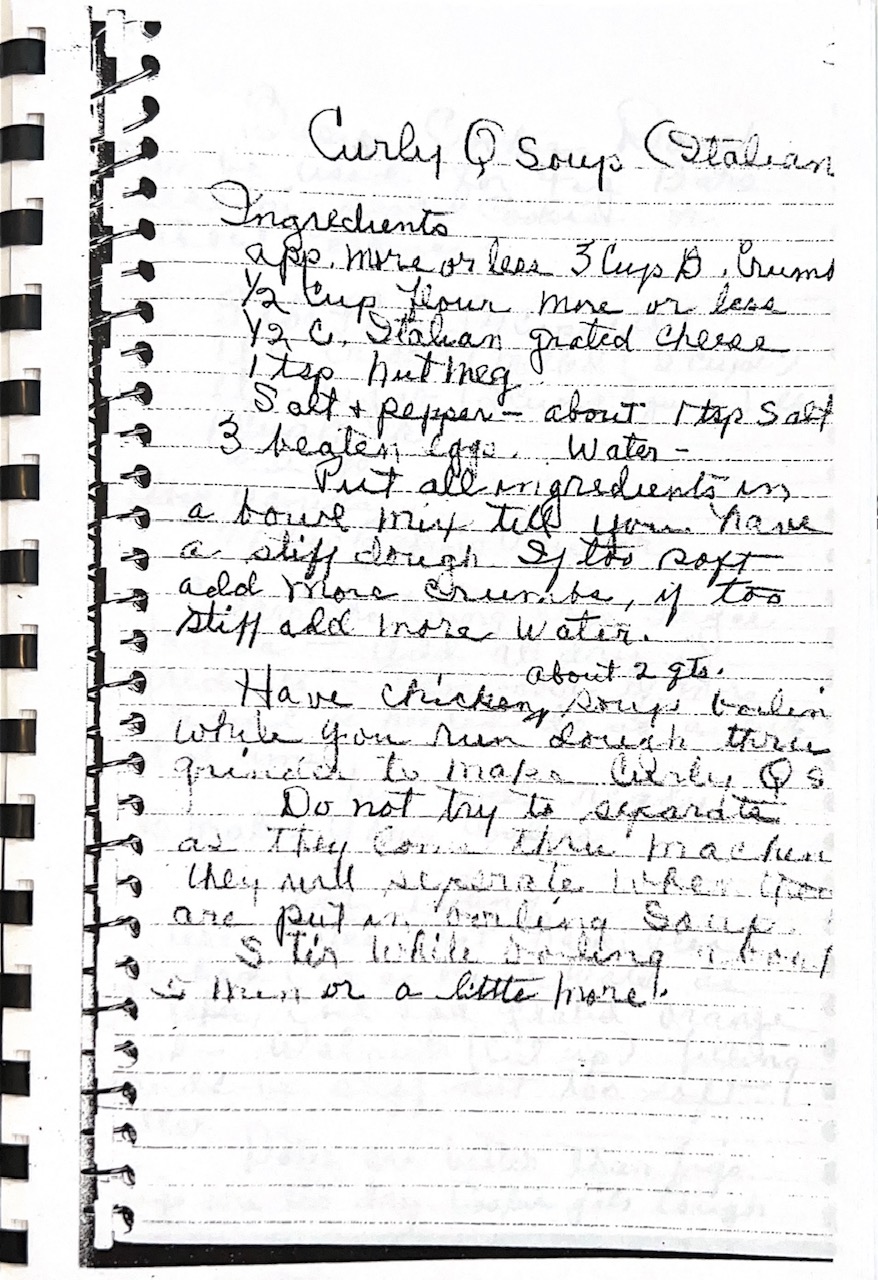 Curly Q Soup (Italian
Ingredients
app. more or less 3 Cups B. Crumb
1/2 Cup flour more or less
1/2 C. Italian grated cheese
1 tsp nutmeg
Salt + pepper - about 1 tsp Salt
3 beaten eggs. Water -
Put all ingredients in
a bowl mix till you have
a stiff dough If too soft
add more crumbs, if too
stiff add more water.
about 2 qts.
Have chicken soup boilin
while you run dough thru
grinder to make Curly Qs
Do not try to separate
as they come thru machin
they will seperate when
are put in boiling Soup.
Stir while boiling about
min or a little more.